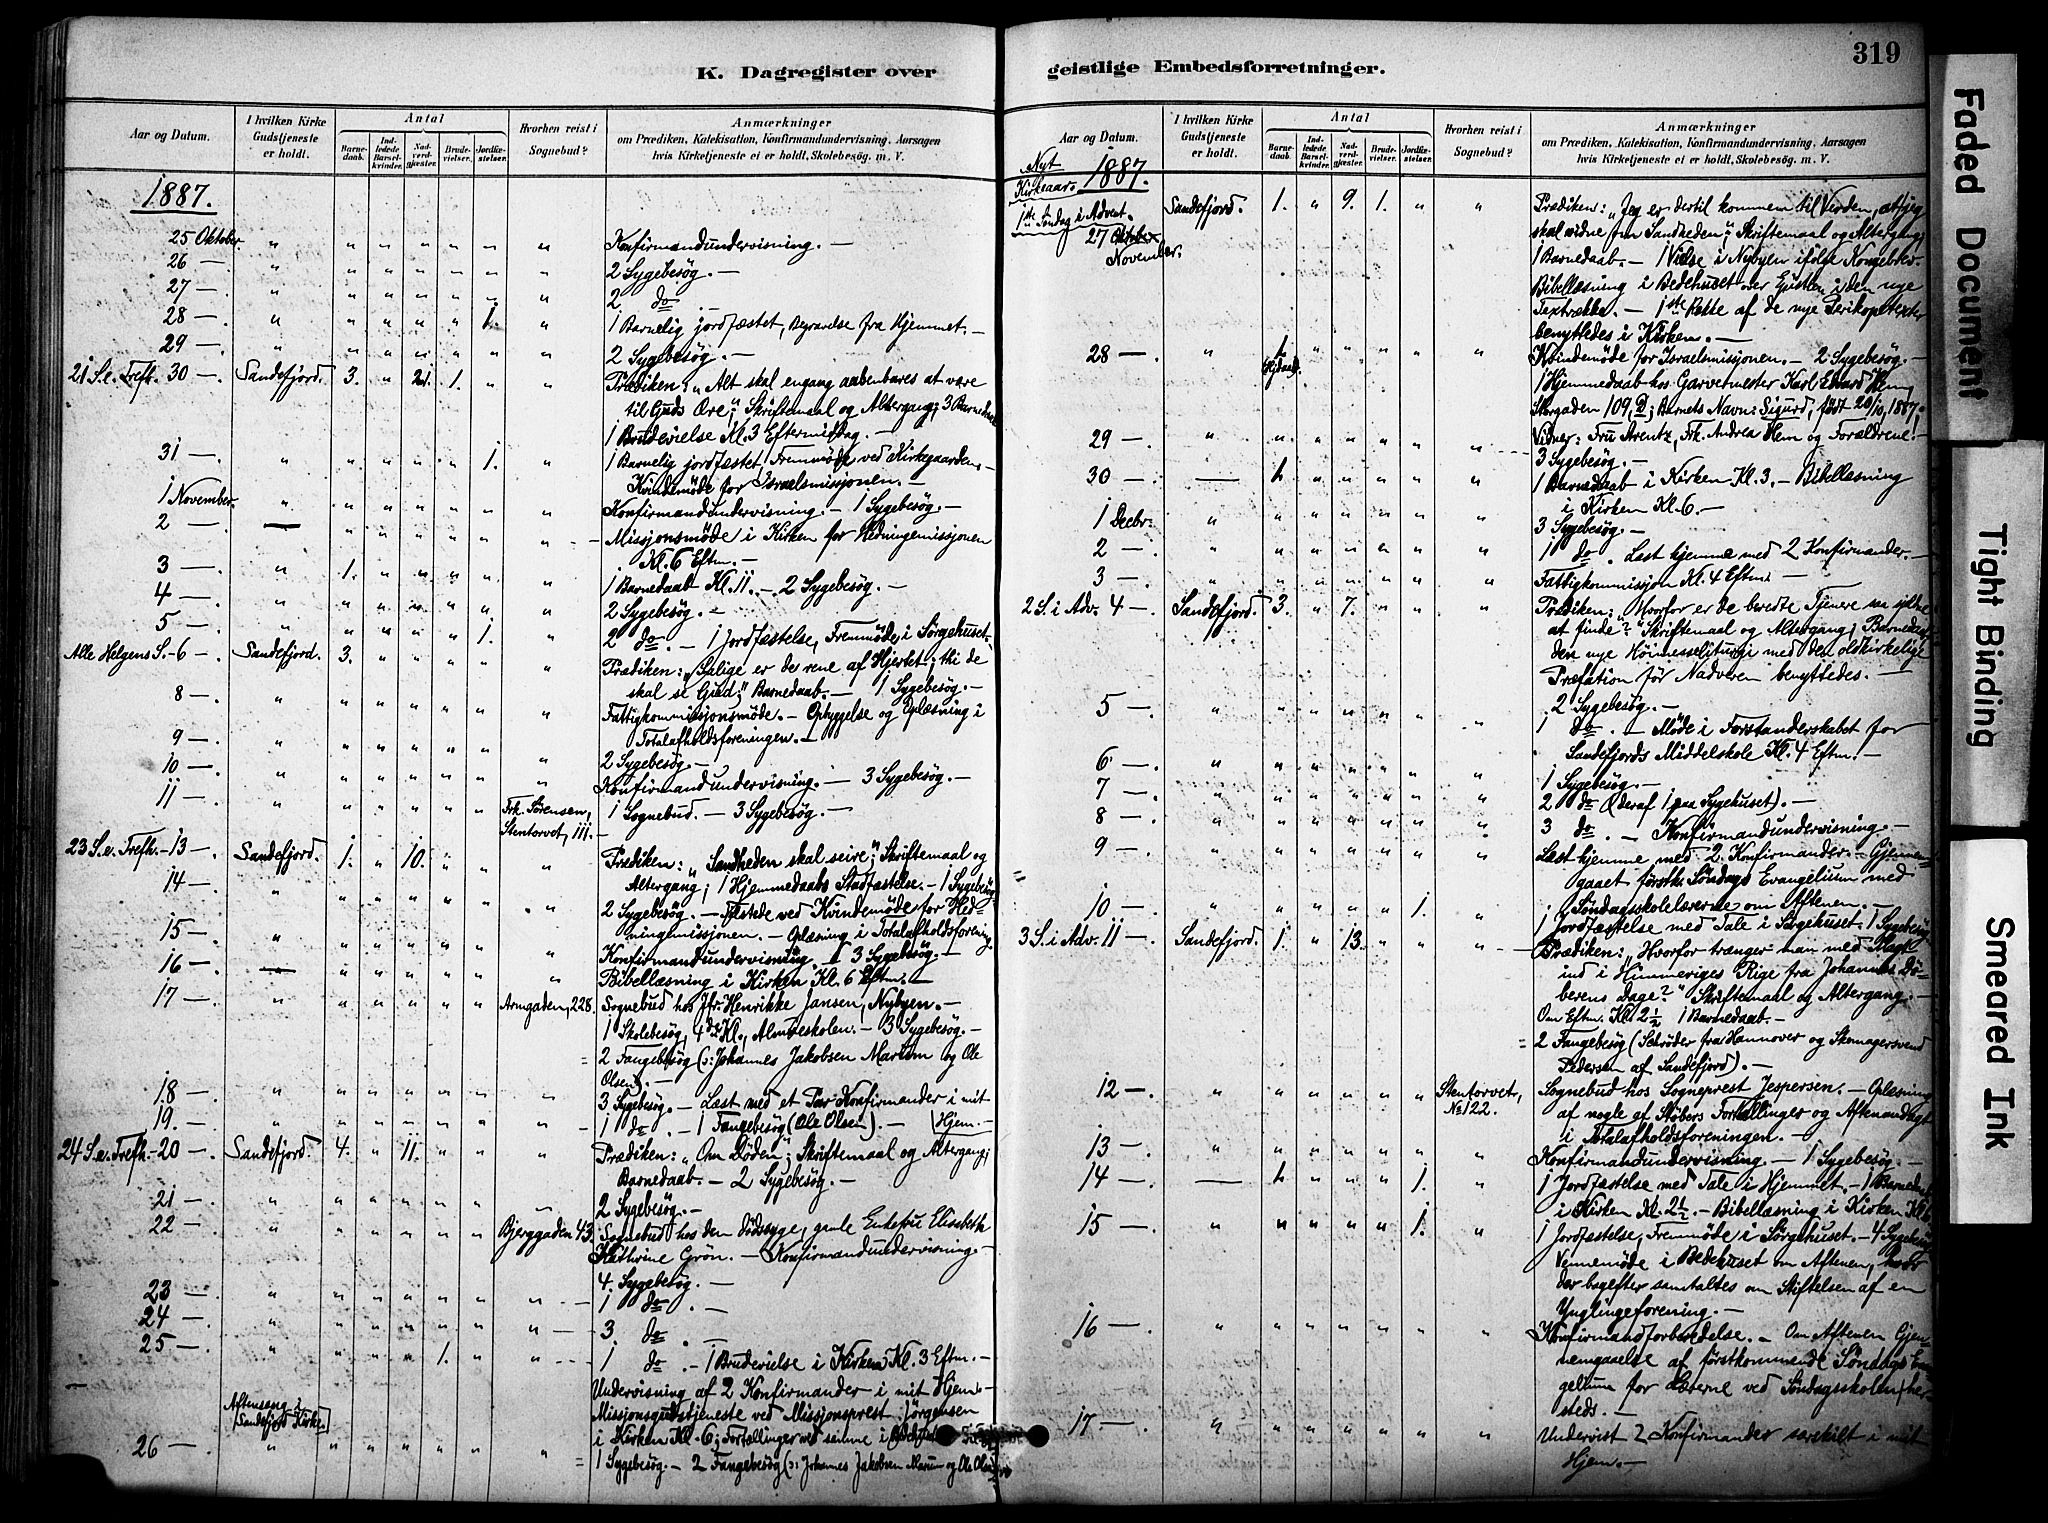 K. Dagregister over
Aar og Datum.
I hvilken Kirke Gudstjeneste er holdt.
Antal
Barne-daab.
Ind-ledede Barsel-kvinder.
Nad-verd-gjæster.
Brude-vielser.
Jordfæ-stelser.
Hvorhen reist i Sognebud?
Anmærkninger
om Prædiken, Katekisation, Konfirmandundervisning, Aarsagen
hvis Kirketjeneste ei er holdt, Skolebesøg. m. V.
1887.
25 Oktober. " " " " " " " Konfirmandundervisning. —
26 — " " " " " " " 2 Sygebesøg. —
27 — " " " " " " " 2 do —
28 — " " " " " 1. " 1 Barnelig jordfæstet, Begravelse fra Hjemmet. —
29 — " " " " " " " 2 Sygebesøg. —
21 S. e. Trefh. 30 — Sandefjord. 3. " 21. 1. " " Prædiken: „Alt skal engang aabenbares at være
til Guds Ære;" Skriftemaal og Altergang; 3 Barnedaab
1 Brudevielse Kl. 3 Eftermiddag. —
31 — " " " " " 1. " 1 Barnelig jordfæstet, Fremmøde ved Kirkegaarden, —
Kvindemøde for Israelsmissjonen. —
1 November. " " " " " " " Konfirmandundervisning. — 1 Sygebesøg. —
2 — — " " " " " " Missjonsmøde i Kirken for Hedningemissjonen
Kl. 6 Eftm. —
3 — " 1. " " " " " 1 Barnedaab Kl. 11. — 2 Sygebesøg. —
4 — " " " " " " " 2 Sygebesøg. —
5 — " " " " " 1. " 2 do. — 1 Jordfæstelse, Fremmøde i Sørgehuset. —
Alle Helgens S. - 6 — Sandefjord. 3. " " " " " Prædiken: „Salige er de rene af Hjertet; thi de
skal se Gud;" Barnedaab. — 1 Sygebesøg. —
8 — " " " " " " " Fattigkommissjonsmøde. — Ophyggelse og Oplæsning i
Totalafholdsforeningen. —
9 — " " " " " " " 2 Sygebesøg. —
10 — " " " " " " " Konfirmandundervisning. — 3 Sygebesøg. —
11 — " " " " " " Frk. Sørensen, 1 Sognebud. — 3 Sygebesøg. —
Stentorvet, 111. —
23 S. e. Trefh. - 13 — Sandefjord. 1. " 10. " " " Prædiken: „Sandheden skal seire;" Skriftemaal og
Altergang; 1 Hjemmedaabs Stadfæstelse. — 1 Sygebesøg
14 — " " " " " " " 2 Sygebesøg. — Tilstede ved Kvindemøde for Hed-
ningemissjonen. — Oplæsning i Totalafholdsforening.
15 — " " " " " " " Konfirmandundervisning. — 3 Sygebesøg. —
16 — — " " " " " " Bibellæsning i Kirken Kl. 6 Eftm. —
17 — " " " " " " Armgaden, 228. Sognebud hos Jfr. Henrikke Jansen, Nybyen. —
1 Skolebesøg, 4de Kl., Almueskolen. — 3 Sygebesøg. —
2 Fangebesøg (ɔ: Johannes Jakobsen Marum og Ole
Olsen). —
18 — " " " " " " " 3 Sygebesøg. — Læst med et Par Konfirmander i mit
19. — " " " " " " " 1 do. — 1 Fangebesøg (Ole Olsen). — Hjem. —
24 S. e. Trefh. - 20 — Sandefjord. 4. " 11. " " " Prædiken: „Om Døden"; Skriftemaal og Altergang;
Barnedaab. — 2 Sygebesøg. —
21 — " " " " " " 2 Sygebesøg. —
22 — " " " " " " Bjerggaden 43. Sognebud hos den dødssyge, gamle Enkefru Elisabeth
Kathrine Grøn. — Konfirmandundervisning. —
4. Sygebesøg. —
23 — " " " " " " " 1 do. —
24 — " " " " " " " 3. do. —
25 — " " " " 1. " " 1 do. — 1 Brudevielse i Kirken Kl. 3 Eftm. —
Undervisning af 2 Konfirmander i mit Hjem. —
Aftensang i Sandefjord Kirke. Missjonsgudstjeneste ved Missjonsprest Jørgensen
i Kirken Kl. 6; Fortællinger ved samme i
26 — " " " " " " " 1 Sygebesøg. — 2 Fangebesøg (ɔ: Johannes Jakobsen Marum og Ole Olsen)
319
geistlige Embedsforretninger.
Aar og Datum.
I hvilken Kirke Gudstjeneste er holdt.
Antal
Barne-daab.
Ind-ledede Barsel-kvinder.
Nad-verd-gjæster.
Brude-vielser.
Jordfæ-stelser.
Hvorhen reist i Sognebud?
Anmærkninger
om Prædiken, Katekisation, Konfirmandundervisning, Aarsagen
hvis Kirketjeneste ei er holdt, Skolebesøg. m. V.
Nyt Kirkeaar. 1887.
1ste Søndag i Advent. 27 Oktober November. Sandefjord. 1. " 9. 1. " " Prædiken: „Jeg er dertil kommen til Verden, at jeg
skal vidne om Sandheden;" Skriftemaal og Altergang;
1 Barnedaab. — 1 Vielse i Nybyen ifølge Kongebrev.
Bibellæsning i Bedehuset over Epistlen i den nye
Textrække. — 1ste Række af de nye Perikopetexter
benyttedes i Kirken. —
28 — " 1 Hjdaab. " " " " " Kvindemøde for Israelsmissjonen. — 2 Sygebesøg. —
1 Hjemmedaab hos Garvermester Karl Edvard Hem,
Storgaden 109, D; Barnets Navn: Sigurd, født 20/10, 1887.
Vidner: Fru Arentz, Frk. Andrea Hem og Forældrene. —
29 — " " " " " " " 3 Sygebesøg. —
30 — — 1 " " " " " 1 Barnedaab i Kirken Kl. 3. — Bibellæsning
i Kirken Kl. 6. —
1 Decbr: " " " " " " " 3 Sygebesøg. —
2 — " " " " " " " 1 do. Læst hjemme med 2 Konfirmander. —
3 — " " " " " " " Fattigkommissjon Kl. 4 Eftm. —
2 S. i Adv. 4 — Sandefjord. 3. " 7. " " " Prædiken: Hvorfor er de beredte Tjenere saa sjeldne
at finde?" Skriftemaal og Altergang; Barnedaab;
den nye Høimesseliturgi med den oldkirkelige
Præfation før Nadveren benyttedes. —
5 — " " " " " " " 2 Sygebesøg. —
1 do. — Møde i Forstanderskabet for
Sandefjords Middelskole Kl. 4 Eftm. —
6 — " " " " " " " 1 Sygebesøg. —
7 — " " " " " " " 2 do (deraf 1 paa Sygehuset). —
8 — " " " " " " " 3 do. — Konfirmandundervisning. —
9 — " " " " " " " Læst hjemme med 2 Konfirmander. — Gjennem-
gaaet førstk. Søndags Evangelium med
Søndagsskolelærerne om Aftenen. —
10 — " " " " " 1. " 1 Jordfæstelse med Tale i Sørgehuset. 1 Sygebesøg
3 S. i Adv. 11 — Sandefjord. 1. " 13. " " " Prædiken: „Hvorfor trænger man med Magt
ind i Himmeriges Rige fra Johannes Dø-
berens Dage?" Skriftemaal og Altergang. —
Om Eftm. Kl. 2½ 1 Barnedaab. —
2 Fangebesøg (Schrøder fra Hannover og Skomagersvend
Pedersen af Sandefjord). —
12 — " " " " " " Stentorvet, No 122. Sognebud hos Sogneprest Jespersen. — Oplæsning
af nogle af Støbers Fortællinger og Aftenandagt
i Totalafholdsforeningen. —
13 — " " " " " " " Konfirmandundervisning. — 1 Sygebesøg. —
14 — — 1 " " " 1. " 1 Jordfæstelse med Tale i Hjemmet. — 1 Barnedaab
i Kirken Kl. 2½. — Bibellæsning i Kirken Kl. 6.
15 — " " " " " 1. " 1 Jordfæstelse, Fremmøde i Sørgehuset. — 4 Sygebesøg
Vennemøde i Bedehuset om Aftenen, hvor
der bagefter samtaltes om Stiftelsen af en
Ynglingeforening. —
16 — " " " " " " " Konfirmandforberedelse. — Om Aftenen Gjen-
nemgaaelse af førstkommende Søndags Evan-
gelium for Lærerne ved Søndagsskolen her-
steds. —
17 — " " " " " " " Undervist 2 Konfirmander særskilt i mit
Hjem. —
Faded Document
Tight Binding
Smeared Ink